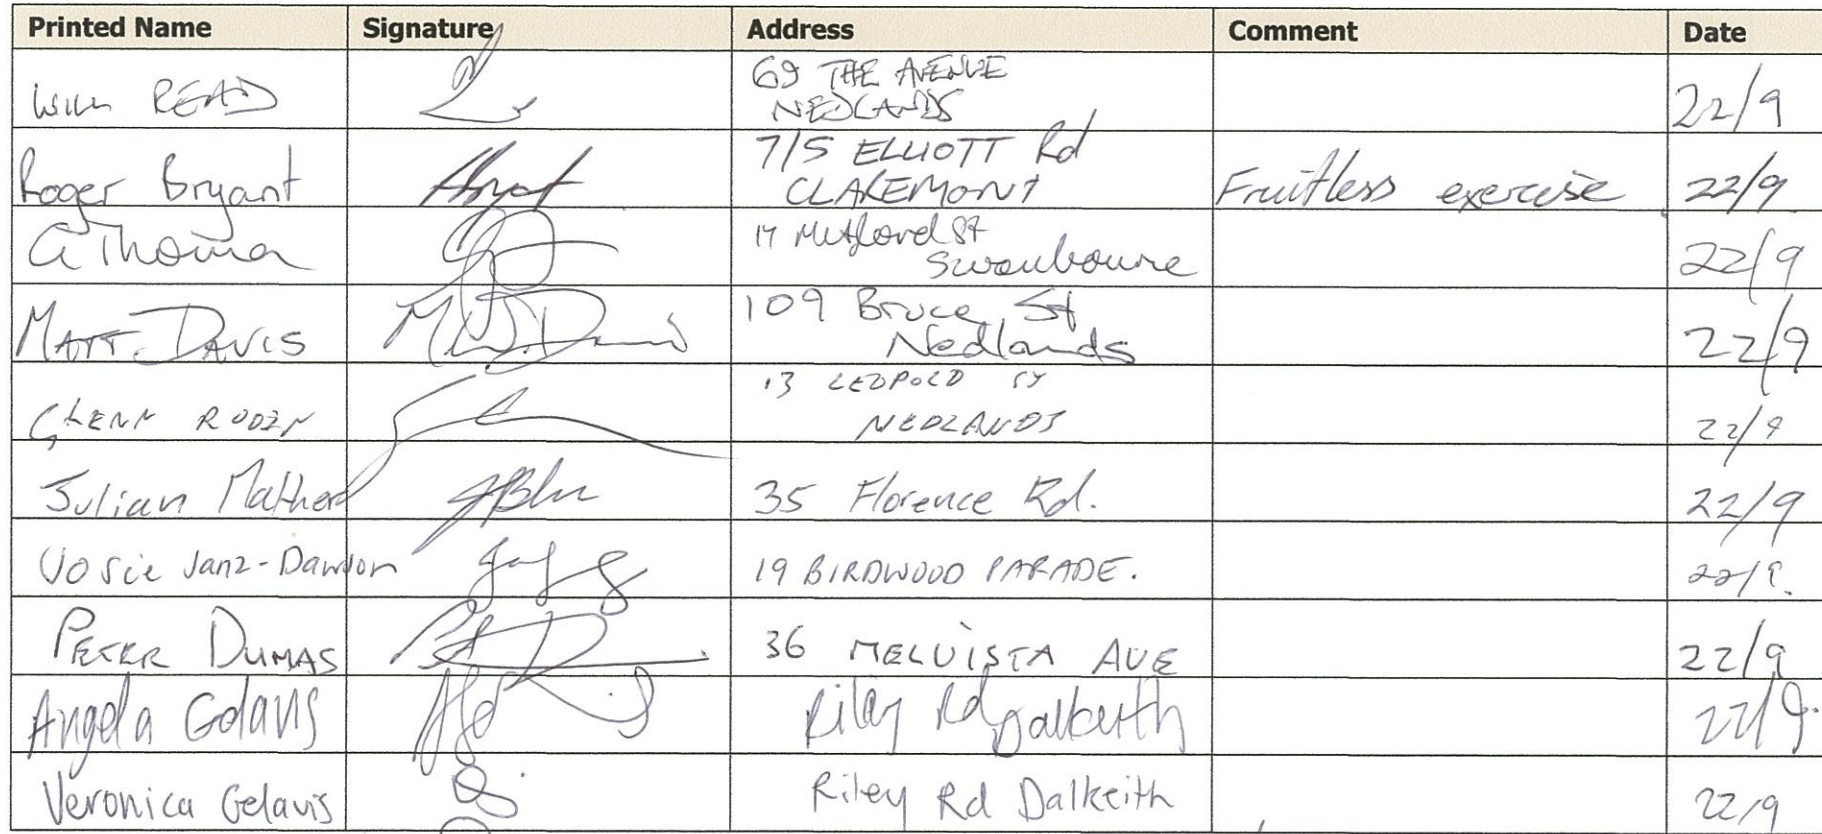 Printed Name Signature Address Comment Date
WILL READ 69 THE AVENUE
NEDLANDS 22/9
Roger Bryant 7/5 ELLIOTT Rd
CLAREMONT Fruitless exercise 22/9
17 St
Swanbourne 22/9
MATT DAVIS 109 Bruce St
Nedlands 22/9
GLENN 13 LEOPOLD ST
NEDLANDS 22/9
Julian 35 Florence Rd. 22/9
Josie Janz-Dawson 19 BIRDWOOD PARADE. 22/9.
PETER DUMAS 36 MELVISTA AVE 22/9
Angela Gelavis Riley Rd Dalkeith 22/9.
Veronica Gelavis Riley Rd Dalkeith 22/9